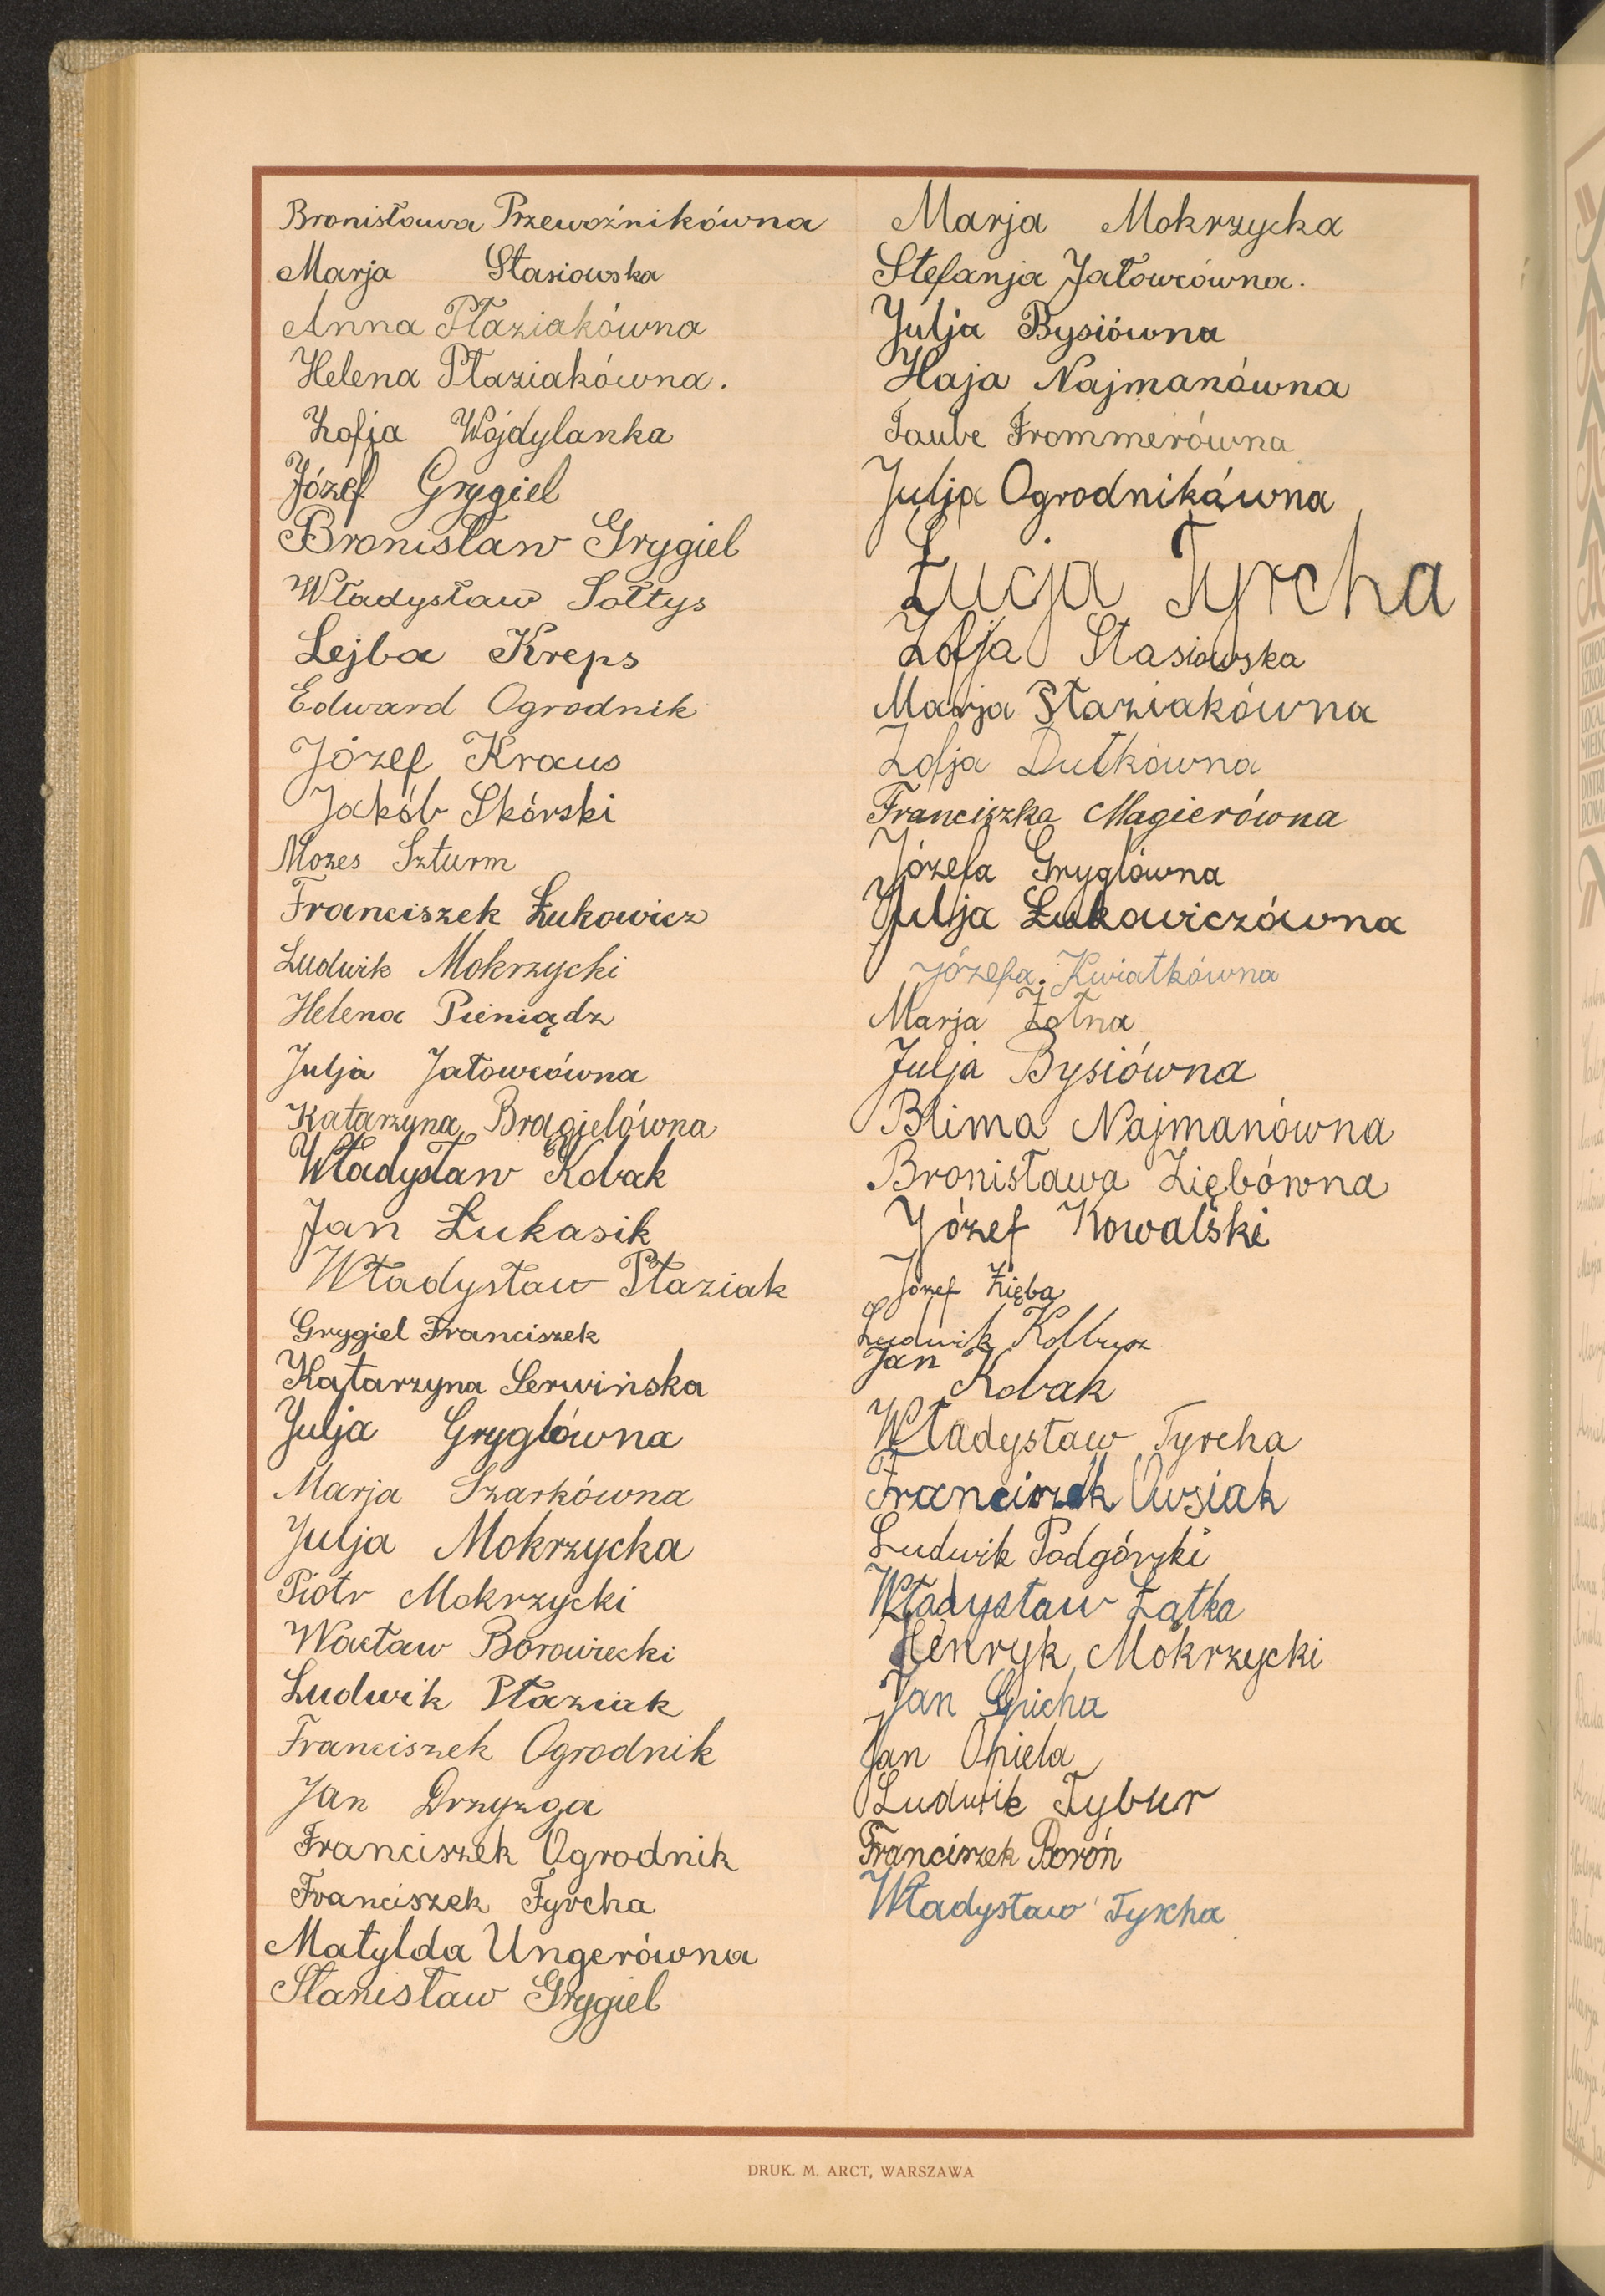 Bronisława Przewoźnikówna
Marja Stasiowska
Anna Płaziakówna
Helena Płaziakówna.
Zofja Wojdylanka
Józef Grygiel
Bronisław Grygiel
Władysław Sołtys
Lejba Kreps
Edward Ogrodnik
Józef Kraus
Jakób Skórski
Mozes Szturm
Franciszek Łukowicz
Ludwik Mokrzycki
Helena Pieniądz
Julja Jałowcówna
Katarzyna Bragielówna
Władysław Kobak
Jan Łukasik
Władysław Płaziak
Grygiel Franciszek
Katarzyna Serwińska
Julja Gryglówna
Marja Szarkówna
Julja Mokrzycka
Piotr Mokrzycki
Wacław Borowiecki
Ludwik Płaziak
Franciszek Ogrodnik
Jan Drzyzga
Franciszek Ogrodnik
Franciszek Tyrcha
Matylda Ungerówna
Stanisław Grygiel
Marja Mokrzycka
Stefanja Jałowcówna.
Julja Bysiówna
Haja Najmanówna
Taube Frommerówna
Julja Ogrodnikówna
Łucja Tyrcha
Zofja Stasiowska
Marja Płaziakówna
Zofja Dutkówna
Franciszka Magierówna
Józefa Gryglówna
Julja Łukowiczówna
Józefa Kwiatkówna
Marja Żołna
Julja Bysiówna
Blima Najmanówna
Bronisława Ziębówna
Józef Kowalski
Józef Zięba
Ludwik Kolbusz
Jan Kobak
Władysław Tyrcha
Franciszek Owsiak
Ludwik Podgórski
Władysław Łątka
Henryk Mokrzycki
Jan Spicha
Jan Opiela
Ludwik Tybur
Franciszek Boroń
Władysław Tyrcha
DRUK. M. ARCT, WARSZAWA